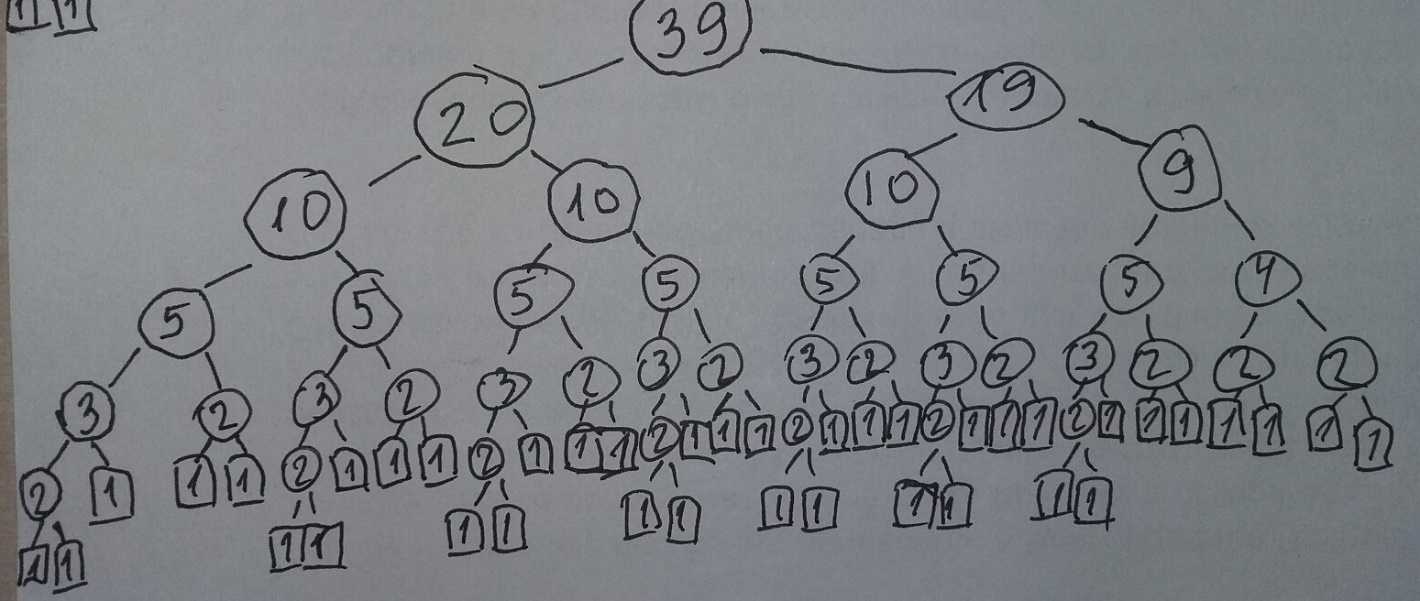 1 1
39
20 19
10 10 10 9
5 5 5 5 5 5 5 4
3 2 3 2 3 2 3 2 3 2 3 2 3 2 2 2
2 1 1 1 2 1 1 1 2 1 1 1 2 1 1 1 2 1 1 1 2 1 1 1 2 1 1 1 1 1 1 1
1 1 1 1 1 1 1 1 1 1 1 1 1 1